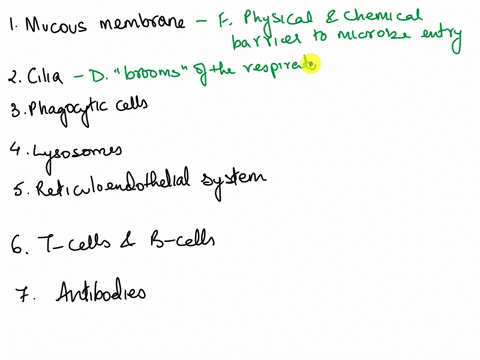 1. Mucous membrane - F. Physical & Chemical
barries to microbe entry
2. Cilia - D. "brooms" of the respirato
3. Phagocytic cells
4. Lysosomes
5. Reticuloendothelial system
6. T-cells & B-cells
7. Antibodies